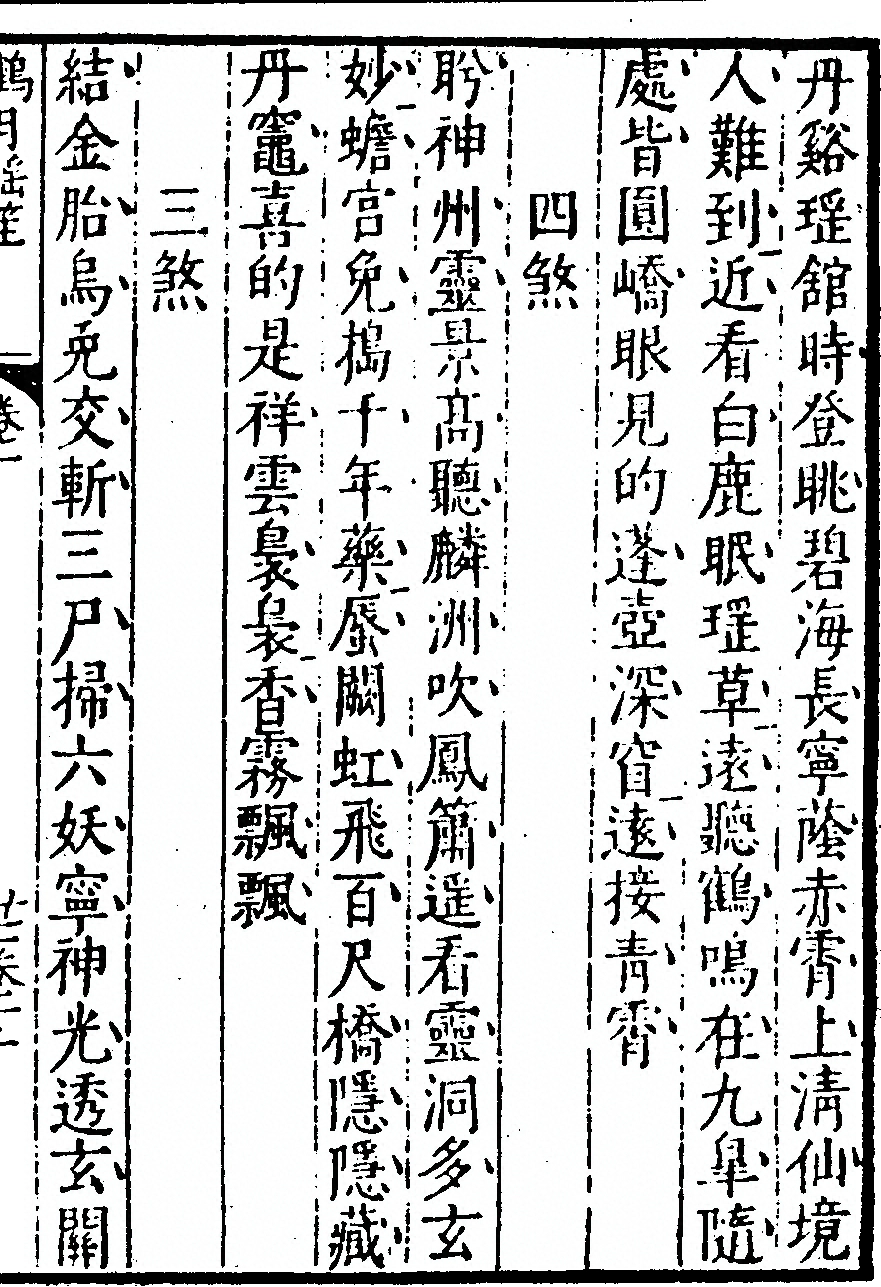 丹谿瑶舘時登眺碧海長寧蔭赤霄上清仙境
人難到近看白鹿眠瑶草遠聽鶴鳴在九臯隨
處皆圓嶠眼見的蓬壺深窅遠接青霄
四煞
聆神州靈景髙聽麟洲吹鳳簫遥看靈洞多玄
妙蟾宫兔搗千年藥蜃闕虹飛百尺橋隱隱藏
丹竈喜的是祥雲裊裊香霧飄飄
三煞
結金胎烏兔交斬三尸掃六妖寧神光透玄關
鶴月瑶笙
卷二